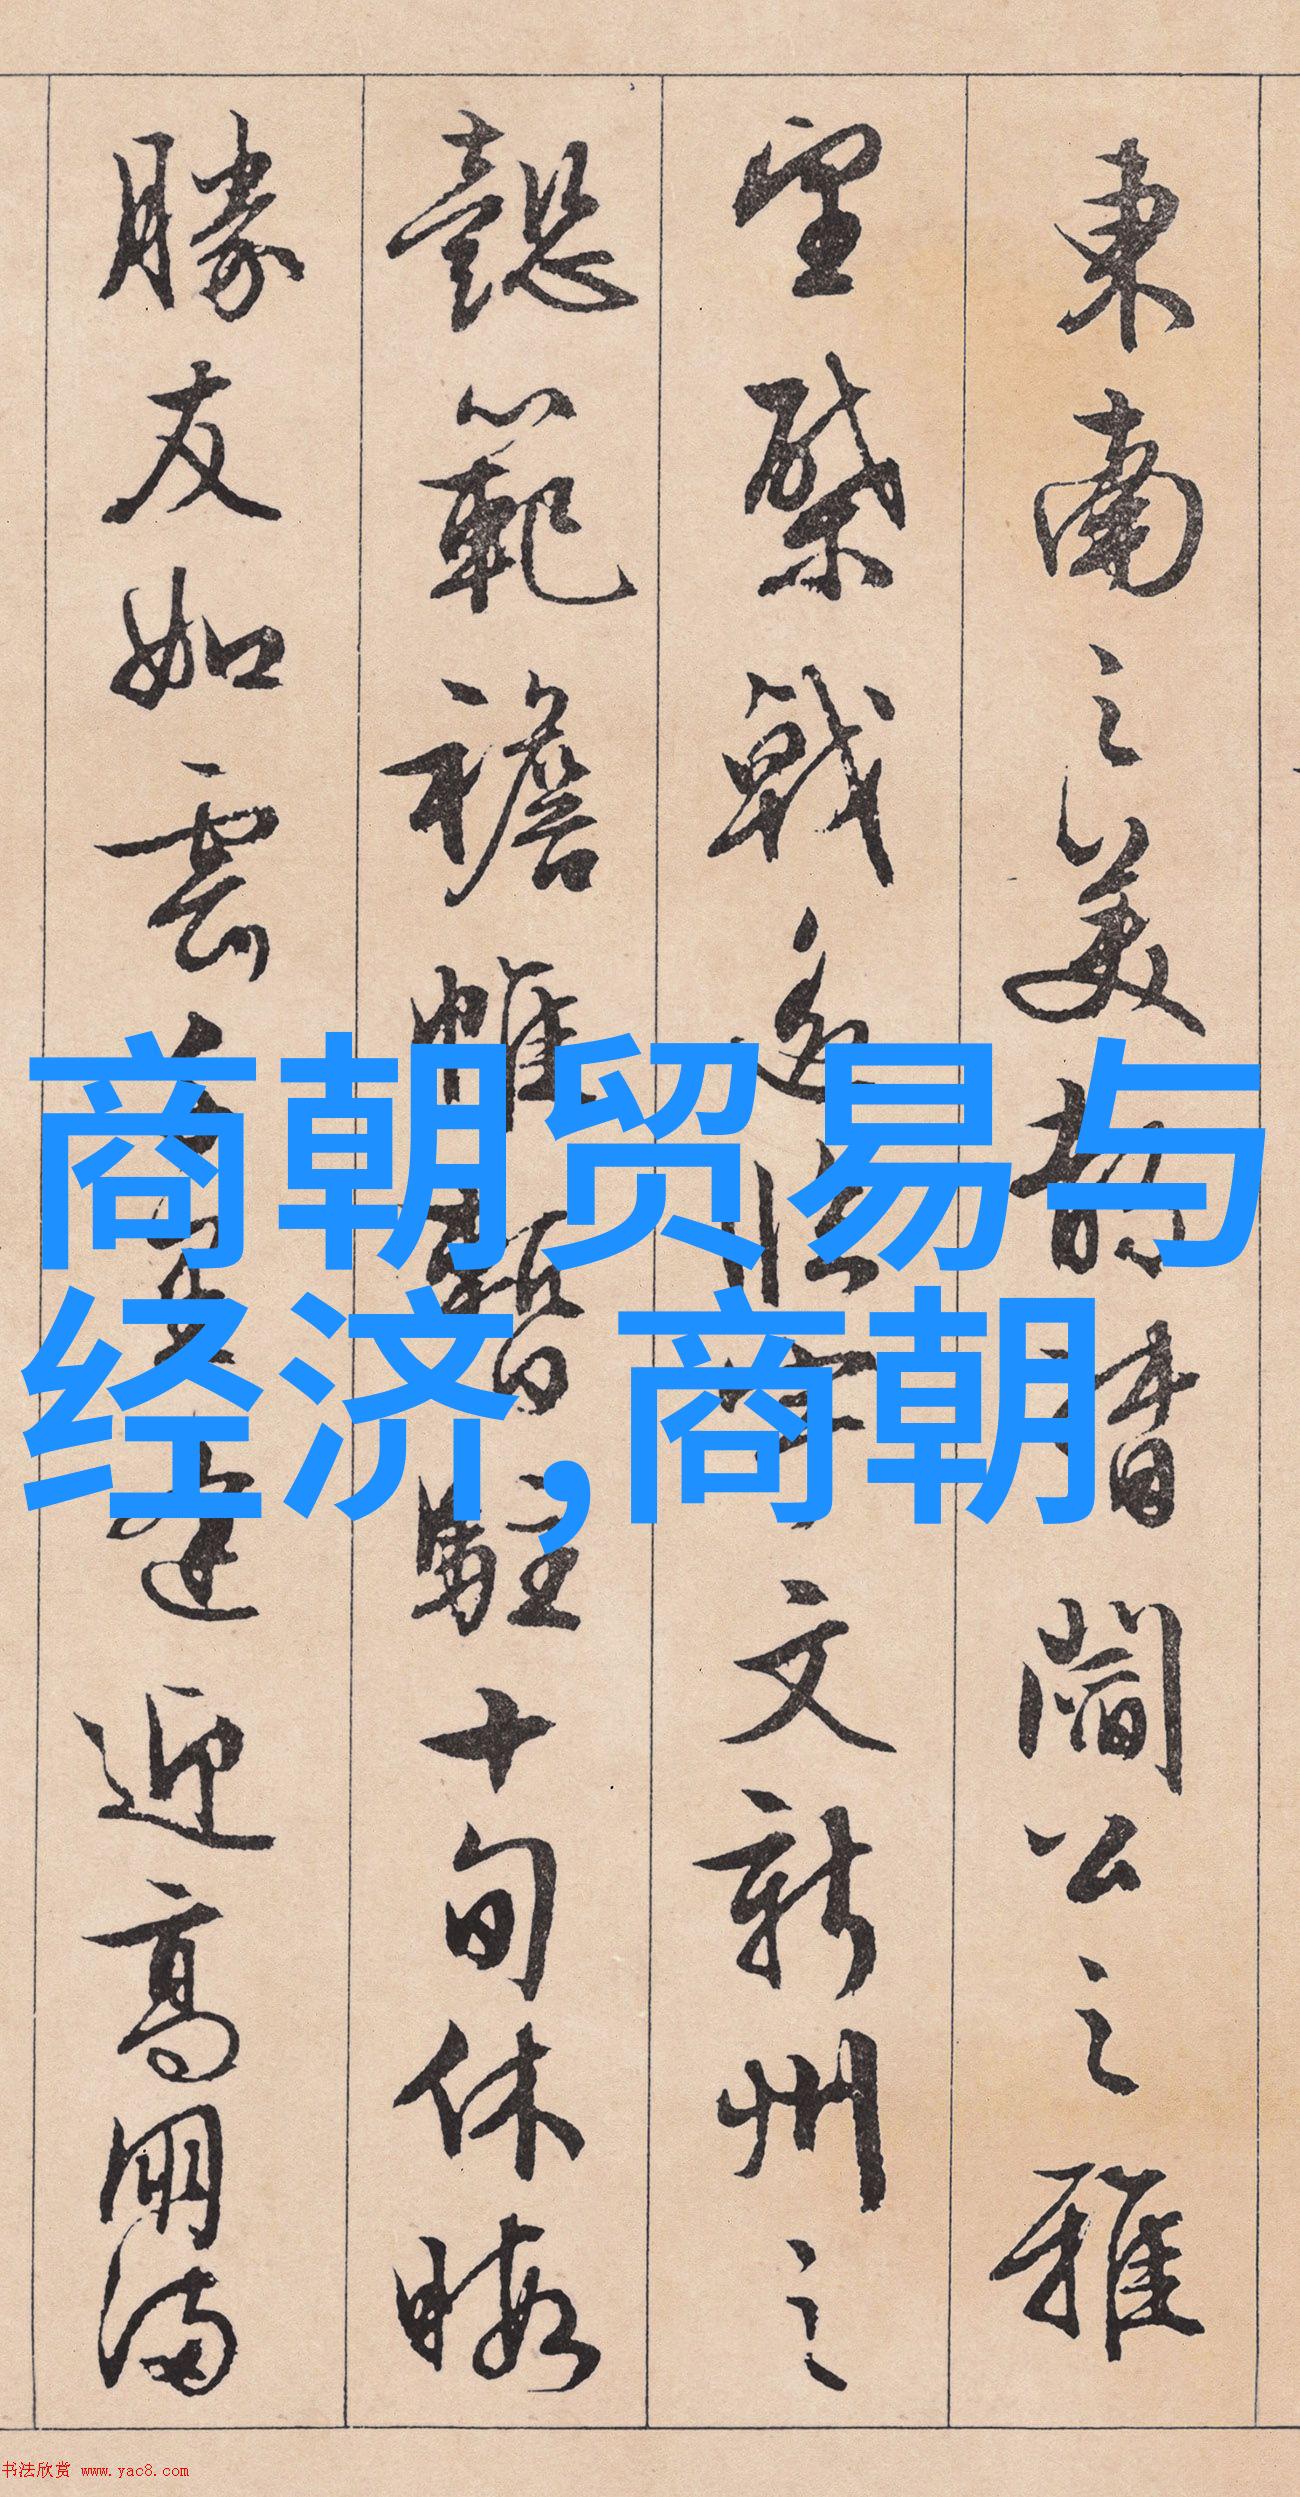 東南之美都督閻公之雅
望棨戟遙臨宇文新州之
懿範襜帷暫駐十旬休暇
勝友如雲千里逢迎高朋滿
商朝贸易与
经济,商朝
书法欣赏 www.yac8.com